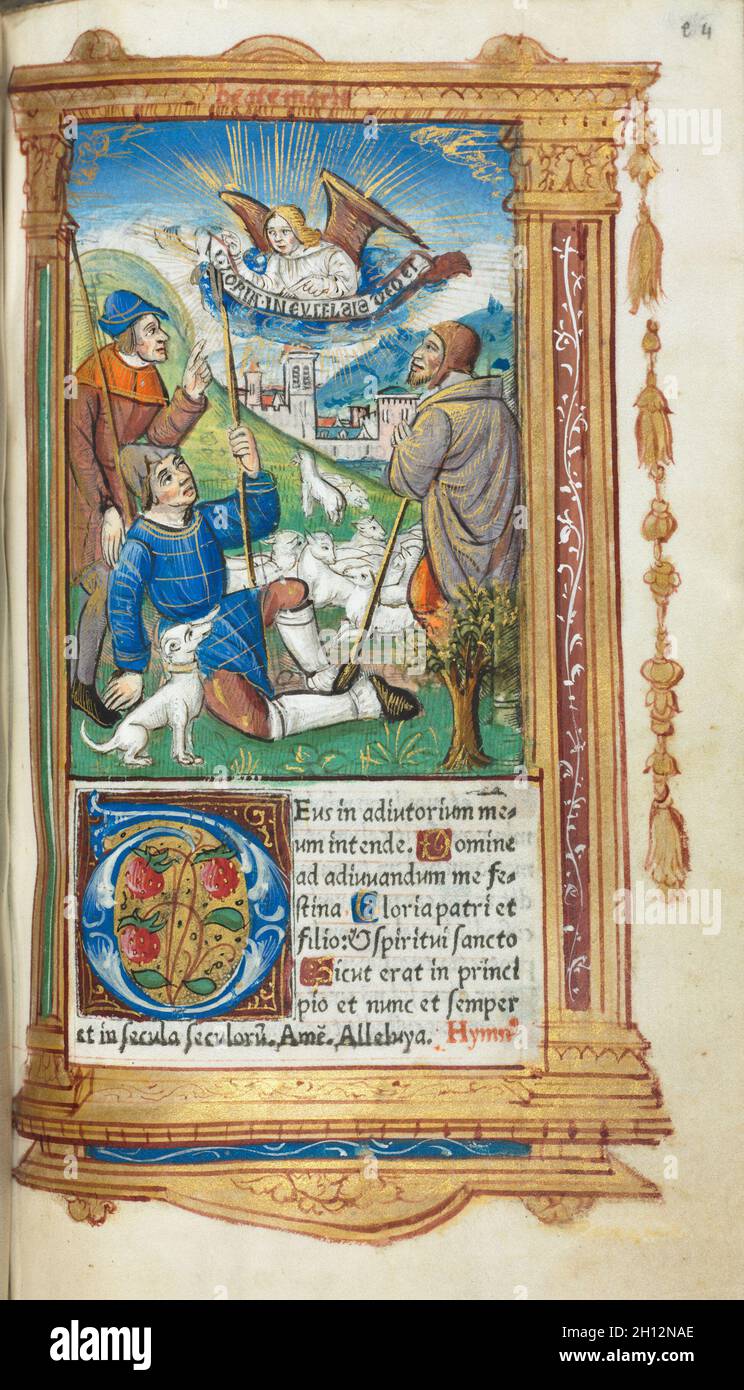 e 4
beate marie
GLORIA·IN EXCELSIS DEO ET
Eus in adiutorium me-
um intende. Domine
ad adiuuandum me fe-
stina Gloria patri et
filio: & spiritui sancto
Sicut erat in princi
pio et nunc et semper
et in secula seculorū. Amē. Alleluya. Hymn⁹
alamy
alamy
Image ID: 2H12NAE
www.alamy.com